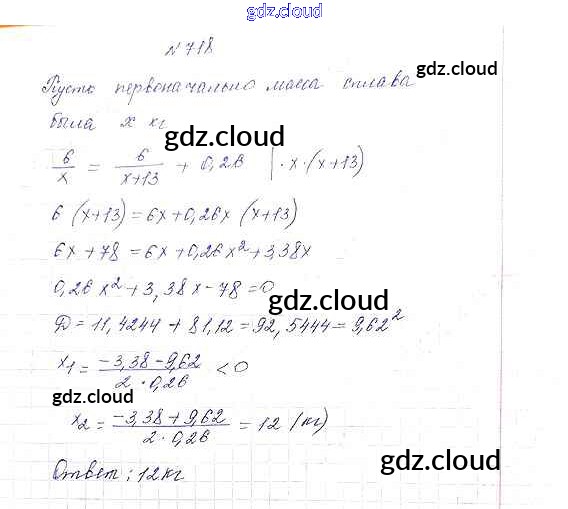 gdz.cloud
№718
Пусть первоначально масса сплава
gdz.cloud
была x кг
gdz.cloud
6/x = 6/(x+13) + 0,26 | · x · (x+13)
6 (x+13) = 6x + 0,26x (x+13)
6x + 78 = 6x + 0,26x² + 3,38x
0,26x² + 3,38x - 78 = 0
gdz.cloud
Д = 11,4244 + 81,12 = 92,5444 = 9,62²
x₁ = (-3,38 - 9,62)/(2 · 0,26) < 0
gdz.cloud
x₂ = (-3,38 + 9,62)/(2 · 0,26) = 12 (кг)
gdz.cloud
Ответ: 12 кг